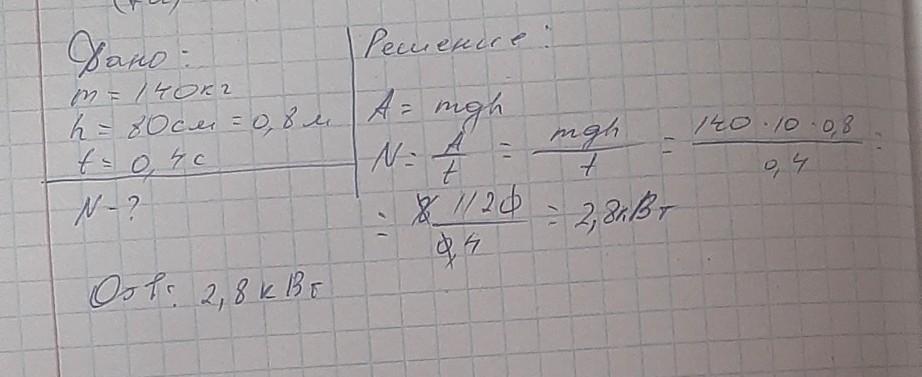 Дано:
m = 140кг
h = 80см = 0,8м
t = 0,4с
N - ?
Решение:
A = mgh
N = A/t = mgh/t = 140·10·0,8/0,4 =
= 1120/0,4 = 2,8кВт
Отв: 2,8кВт